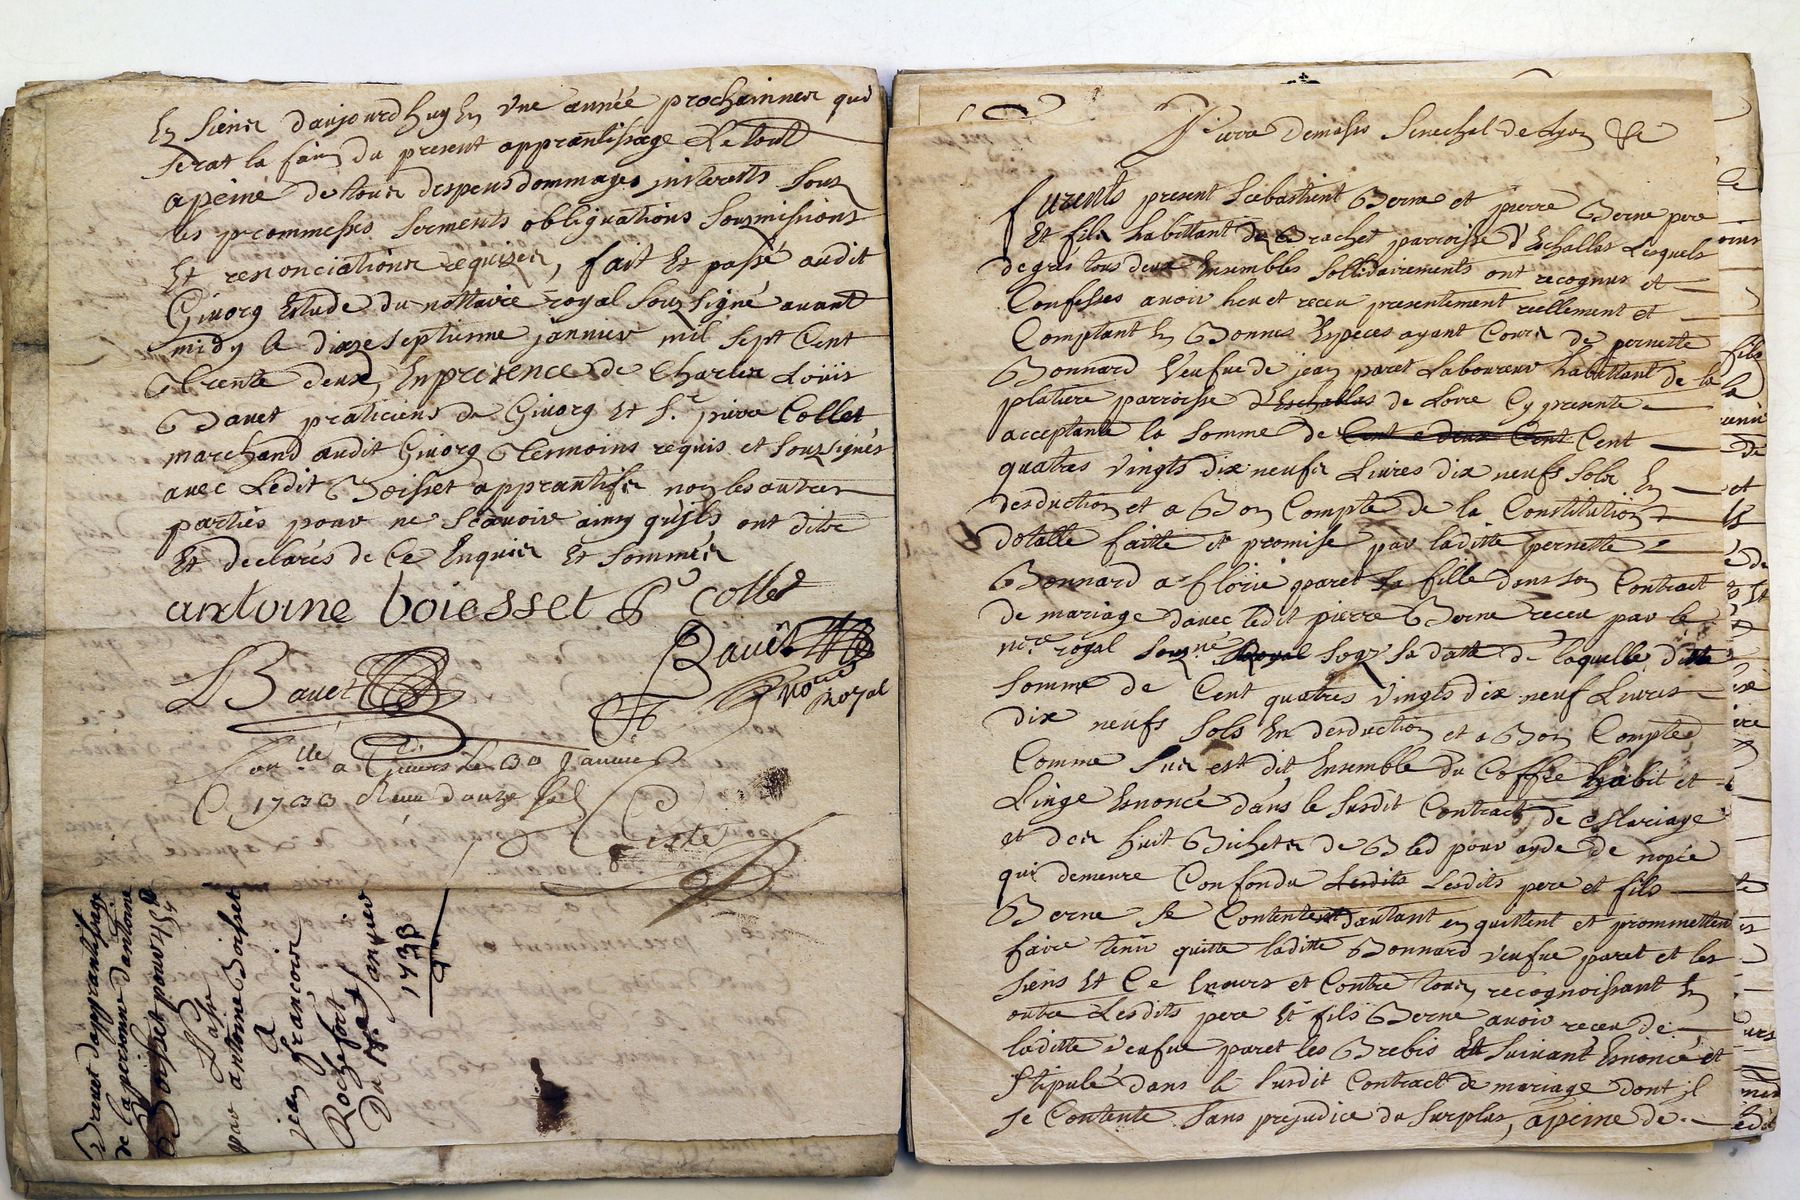 Et Siens d'aujourdhuy En vne année prochainnes qui
serat la fain du present apprantissage Le tout
apeine de tous despens dommages jnterests sous
les prommesses serments obliguations soumissions
Et renonciations requizes, fait Et passé audit
Givors Estude du nottaire royal sousigné avant
midy le dixe septieme janvier mil sept Cent
trente deux, En présence de Charles Loüis
Bavet praticiens de Givors Et Sr. pierre Collet
marchand audit Givors tesmoins requis et sousignés
avec Ledit Boisset apprantifs non les autres
parties pour ne scavoir ainsy qu'jls ont ditre
Et declarés de Ce Enquis Et sommés
antoine boiesset P Collet
Bavet
LBavet
Royal
a Givors Le 30 Janvier
1733 Receu douze sols
Brevet dapprantissage
de la personne dantoine
Boisset pour
Passé
par antoinne Boisset
a
jean francois
Rochefort
Du Janvier
1733
Pierre Demasso Senechal de Lyon &c
furents present Sebastient Berne et pierre Berne pere
Et fils habittant de Brachet parroisse d'Echallas Lesquels
degrés tous deux Ensembles sollidairements ont recognus et
Confesses avoir heu et receu presentement reellement et
Comptant En Bonnes Especes ayant Cours de pernette
Bonnard Veufue de jean paret Laboureur habittant de la
platiere parroisse d'Eschallas de Loire Cy presente
acceptante la somme de Cent deux Cent Cent
quatres vingts dix neufs Livres dix neufs sols En
desduction et a Bon Compte de la Constitution
dotalle faitte et promise par laditte pernette
Bonnard a florie paret sa fille dans son Contract
de mariage d'avec ledit pierre Berne receu par le
nre royal sousné Royal sous sa datte de laquelle ditte
somme de Cent quatres vingts dix neuf Livres
dix neufs sols En desduction et a Bon Compte
Comme sus est dit Ensemble du Coffre habit et
Linge Enoncé dans le susdit Contract de Mariage
et des huit Bichets de Bled pour ayde de nopce
qui demeure Confondu Lesdits Lesdits pere et fils
Berne se Contentent dautant en quittent et promettent
faire tenir quitte laditte Bonnard veufue paret et les
siens Et Ce Envers et Contre tous recognoissant En
outre Lesdits pere Et fils Berne avoir receu de
laditte veufue paret les Brebis Et suivant Enoncé et
stipulé dans le susdit Contract de mariage dont jl
se Contente sans prejudice du surplus, apeine de